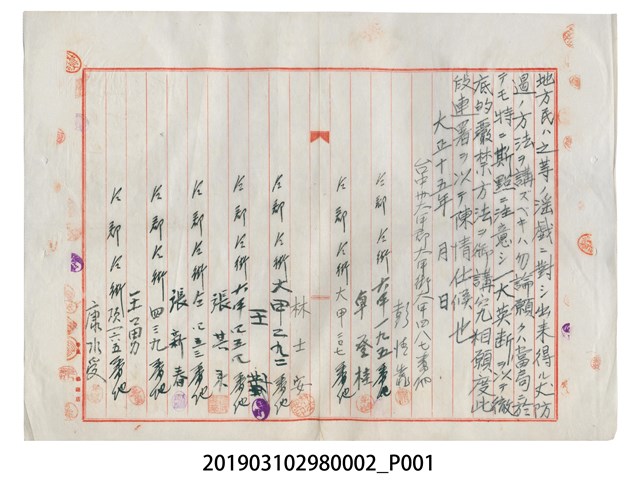 地方民ハ之等ノ淫戯ニ對シ出來得ル丈防
遏ノ方法ヲ講ズベキハ勿論願クハ當局ニ於
テモ特ニ斯點ニ注意シ一大英断ヲ以テ徹
底的嚴禁方法ヲ御講究相願度此
段連署ヲ以テ陳情仕候也
大正十五年 月 日
台中州大甲郡大甲街大甲四八七番地
仝郡仝街大甲一九五番地
卓登桂
仝郡仝街大甲二〇七番地
林士安
仝郡仝街大甲二九二番地
王
仝郡仝街大甲二三七番地
張其來
仝郡仝街仝二三三番地
張新春
仝郡仝街四三九番地
王勇
仝郡仝街頂二六五番地
康水受
201903102980002_P001